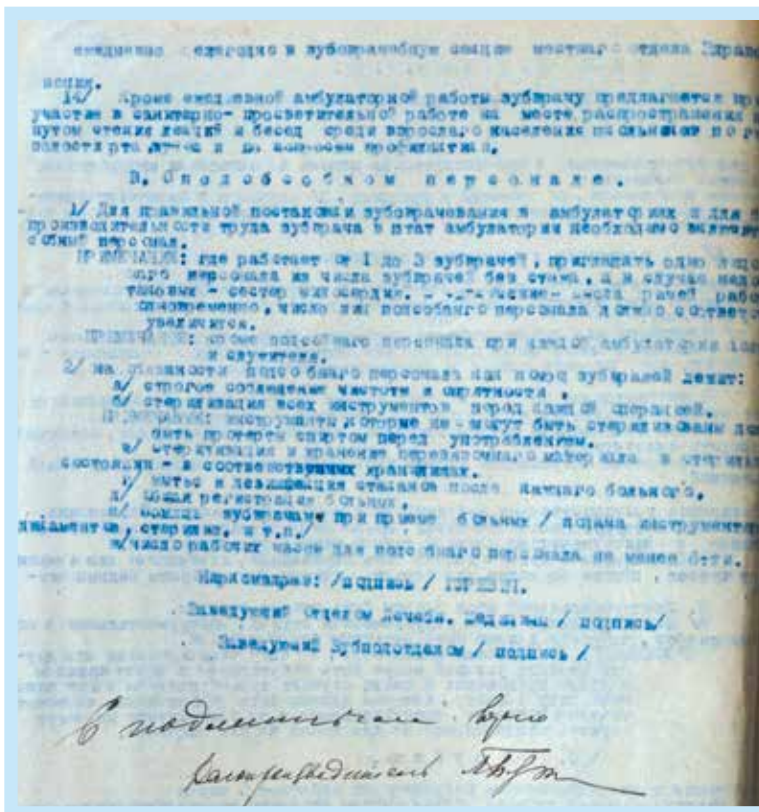 ежедневно в зубоврачебную секцию местнаго отдела Здраво
14/ Кроме ежедневной амбулаторной работы зубврачу предлагается
участие в санитарно-просветительной работе на месте, распространения
путем чтения лекций и бесед среди взрослаго населения школьников по
полости рта и по вопросам профилактики.
В. О подсобном персонале.
1/ Для правильной постановки зубоврачевания в амбулаториях и для
производительности труда зубврача в штат амбулатории необходимо включить
собный персонал.
ПРИМЕЧАНИЕ: где работает от 1 до 3 зубврачей, приглашать одно лицо
ного персонала из числа зубврачей без стажа, а в случае
таковых - сестер милосердия. числа врачей
одновременно, число лиц подсобнаго персонала должно соответс
увеличится.
ПРИМЕЧАНИЕ: кроме подсобнаго персонала при каждой амбулатории
и служителя.
2/ на обязанности подсобнаго персонала как помощ зубврачей лежит:
а/ строгое соблюдение чистоты и опрятности,
б/ стерилизация всех инструментов перед каждой операцией.
ПРИМЕЧАНИЕ: инструменты которые не могут быть стерилизованы
быть протерты спиртом перед употреблением.
в/ стерилизация и хранение перевязочнаго материала в
состоянии - в соответствующих хранилищах.
г/ мытье и дезинфекция стаканов после каждого больного.
д/ общая регистрация больных.
е/ помощь зубврачам при приеме больных / подача инструментов
дикаментов, стерилиз. и т.п./
число рабочих часов для подсобнаго персонала не менее
Наркомздрав: /подпись/
Заведующий Отделом Лечебн. Медицины / подпись/
Заведующий Зубподотделом / подпись /
С подлинным верно